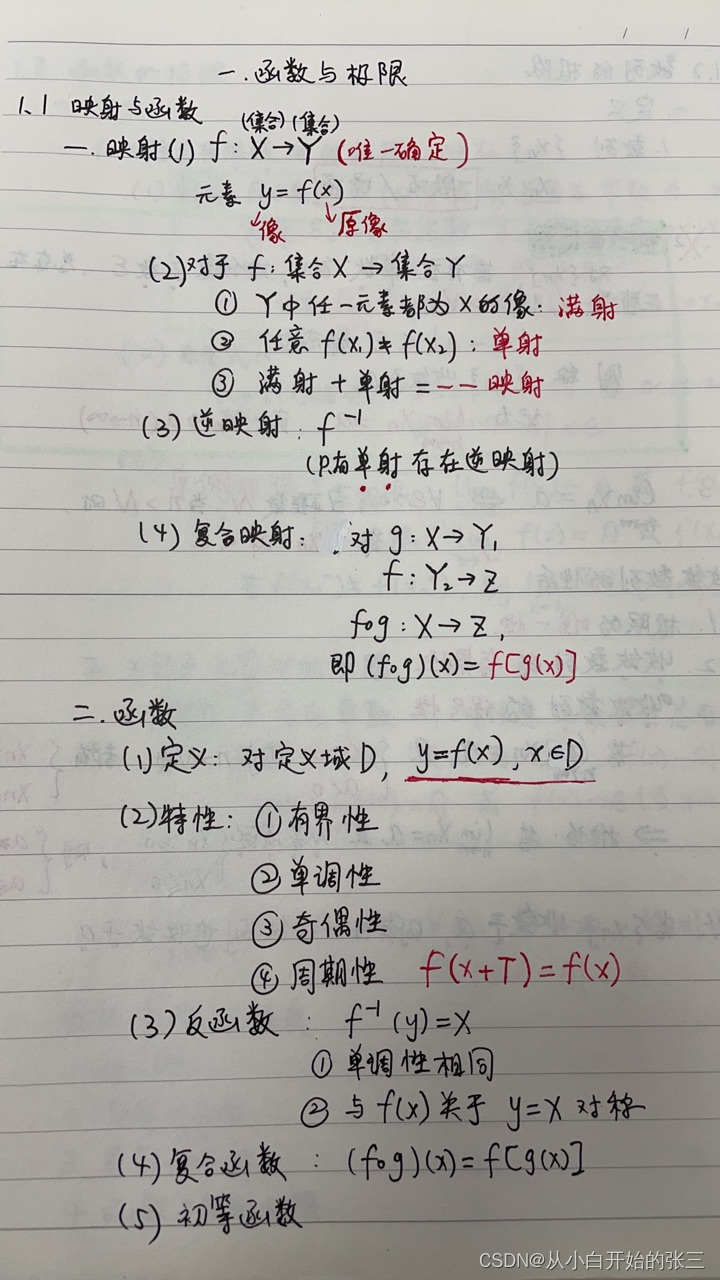 一.函数与极限
1.1 映射与函数
(集合) (集合)
一.映射(1) f: X→Y (唯一确定)
元素 y=f(x)
像 原像
(2)对于 f:集合X→集合Y
① Y中任一元素都为X的像:满射
② 任意f(x₁)≠f(x₂):单射
③ 满射+单射=一一映射
(3)逆映射: f⁻¹
(只有单射存在逆映射)
(4)复合映射: 对 g:X→Y₁
f:Y₂→Z
f∘g:X→Z,
即(f∘g)(x)=f[g(x)]
二.函数
(1)定义:对定义域D, y=f(x),x∈D
(2)特性:①有界性
②单调性
③奇偶性
④周期性 f(x+T)=f(x)
(3)反函数: f⁻¹(y)=x
①单调性相同
②与f(x)关于y=x对称
(4)复合函数:(f∘g)(x)=f[g(x)]
(5)初等函数
CSDN@从小白开始的张三